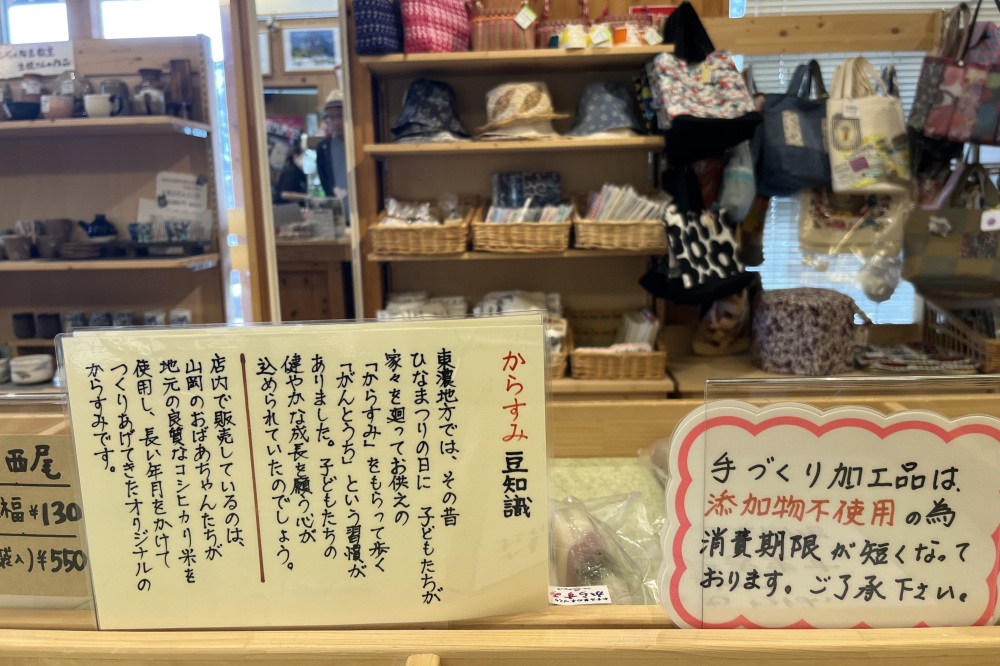 からすみ 豆知識
東濃地方では、その昔
ひなまつりの日に 子どもたちが
家々を廻ってお供えの
「からすみ」をもらって歩く
「がんどうち」という習慣が
ありました。子どもたちの
健やかな成長を願う心が
込められていたのでしょう。
店内で販売しているのは、
山岡のおばあちゃんたちが
地元の良質なコシヒカリ米を
使用し、長い年月をかけて
つくりあげてきたオリジナルの
からすみです。
西尾
福 ¥130
袋入) ¥550
手づくり加工品は、
添加物不使用の為
消費期限が短くなって
おります。ご了承下さい。
からすみ